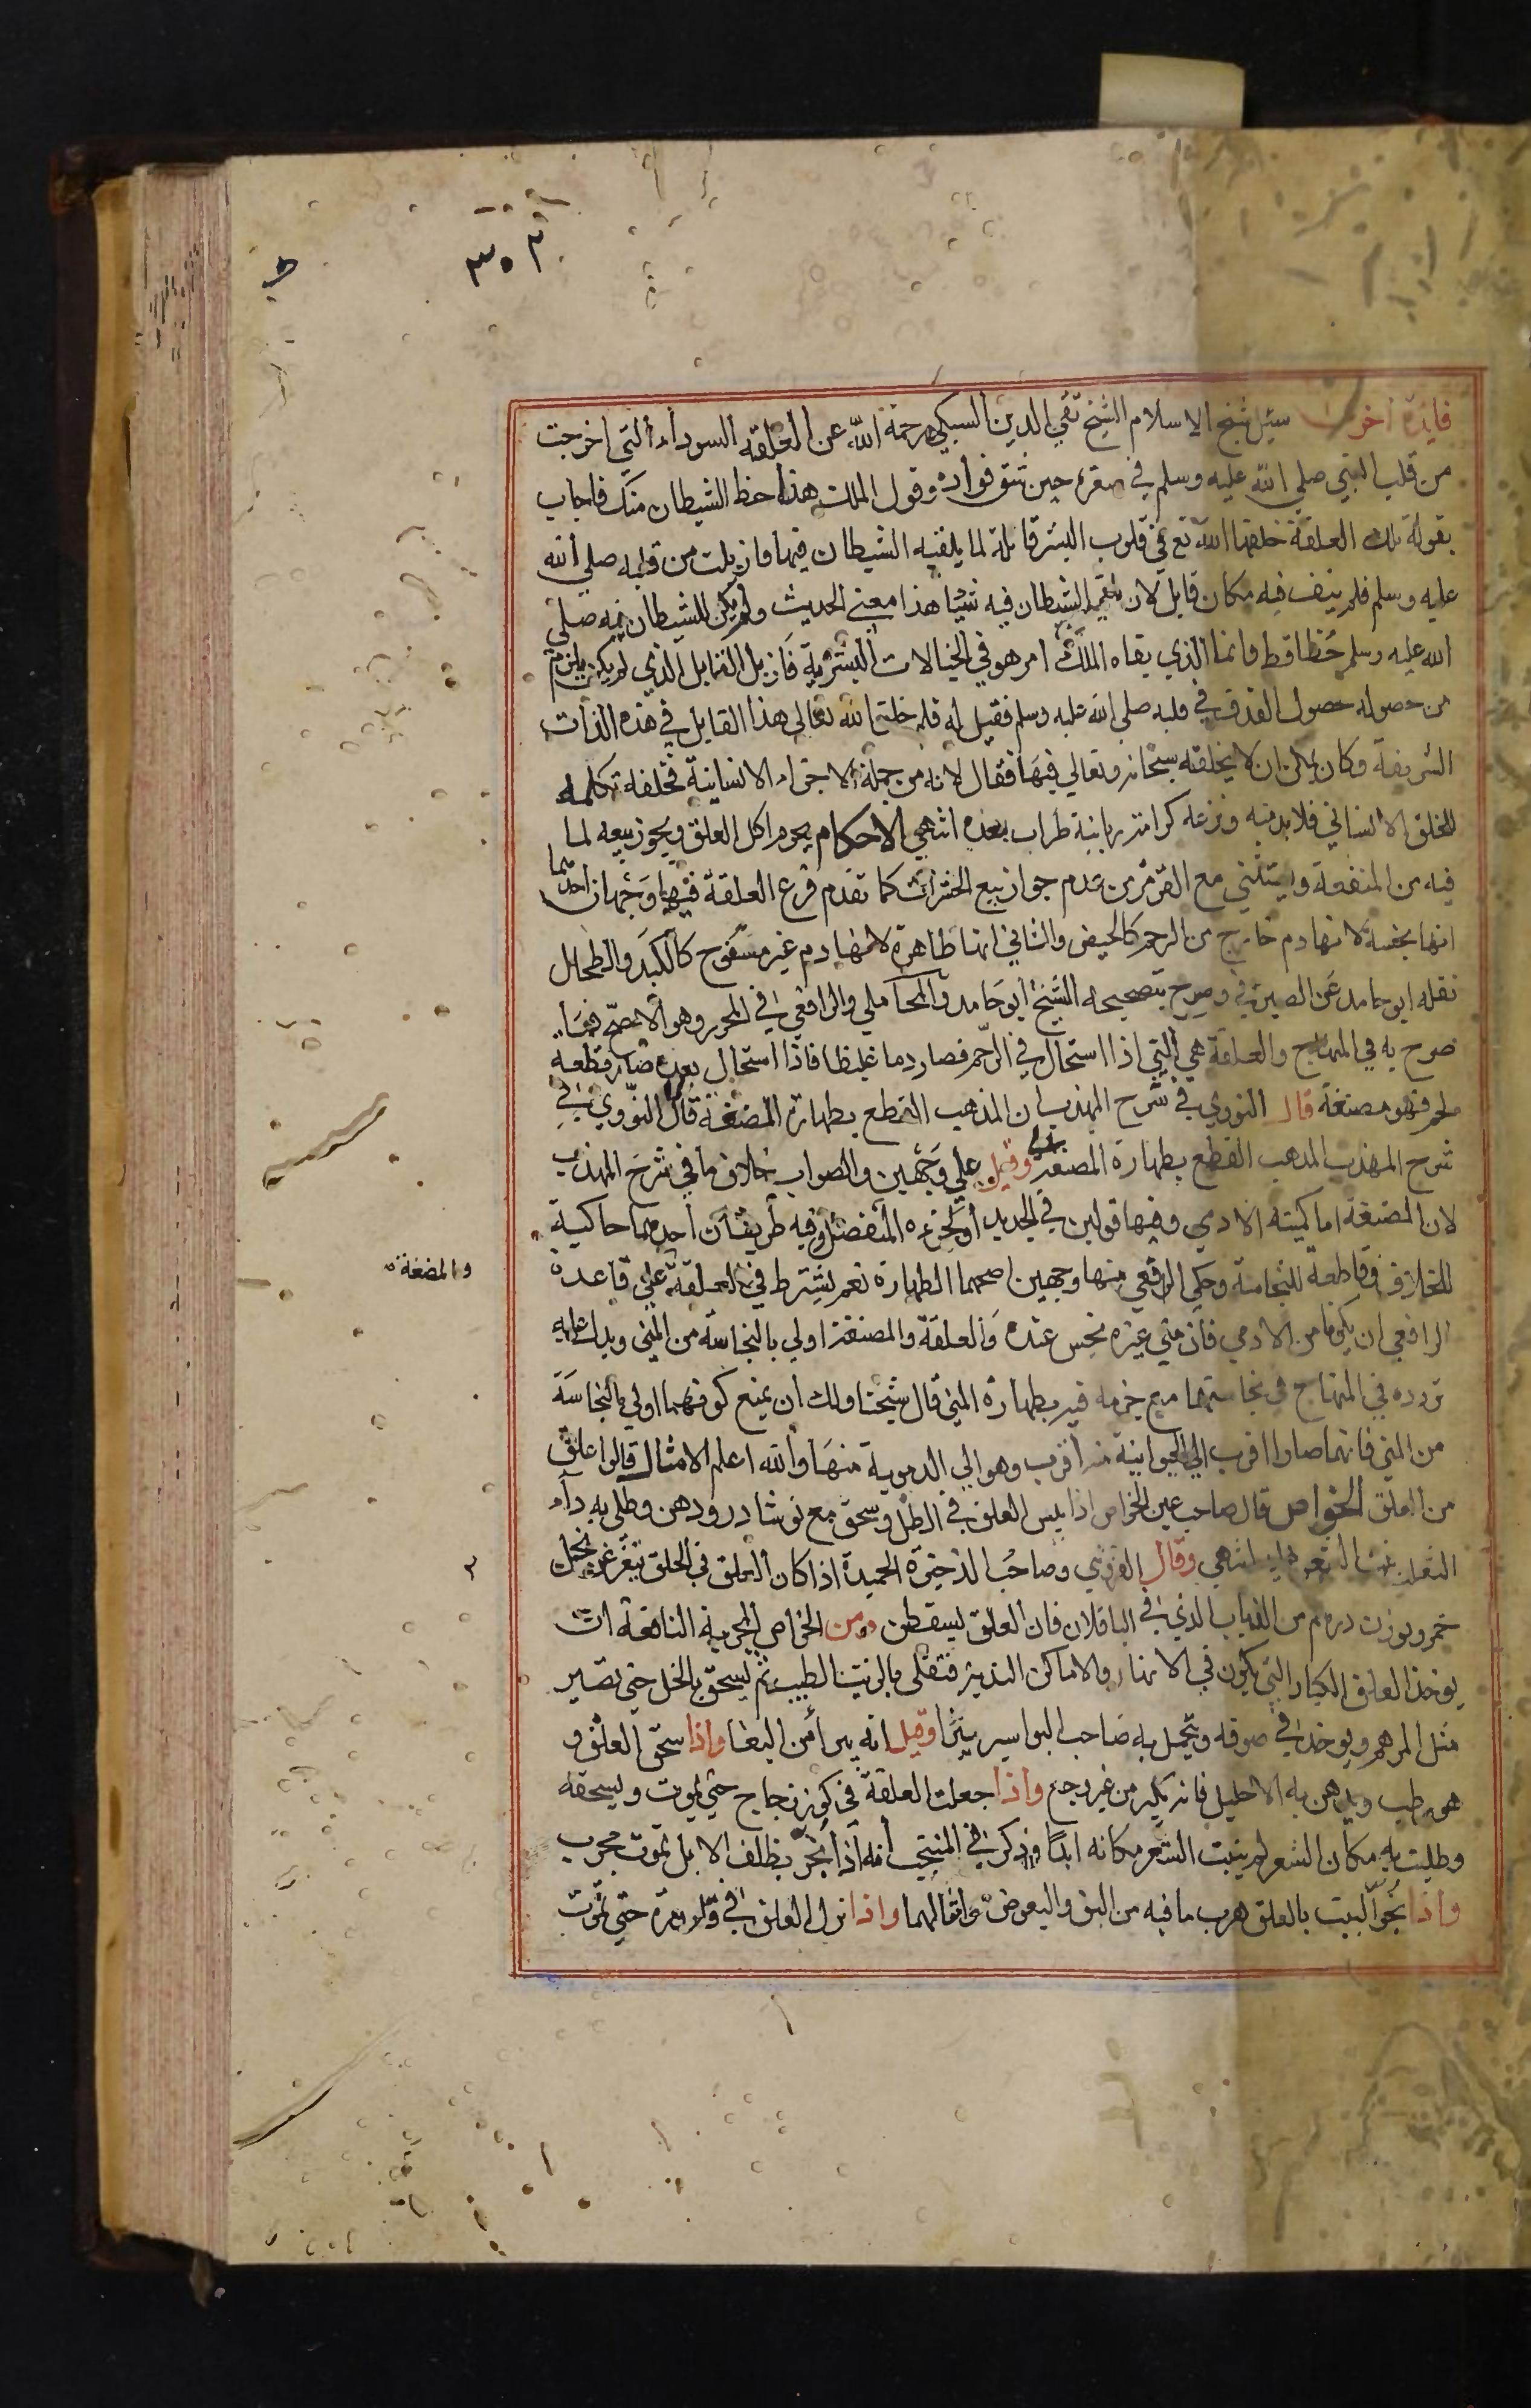 ٣٠٣
فايدة اخرى سئل شيخ الاسلام الشيخ تقي الدين السبكي رحمة الله عن العلقة السوداء التي اخرجت
من قلب النبي صلي الله عليه وسلم في صغره حين شق فواده وقول الملك هذا حظ الشيطان منك فاجاب
بقوله تلك العلقة خلقها الله تع في قلوب البشر قابلة لما يلقيه الشيطان فيها فازيلت من قلبه صلي الله
عليه وسلم فلم يبق فيه مكان قابل لان يلقي الشيطان فيه شيا هذا معني الحديث ولم يكن للشيطان فيه صلي
الله عليه وسلم حظا قط وانما الذي نقاه الملك امر هو في الخيالات البشرية فازيل القابل الذي لم يكن يلزم
من حصوله حصول القذف في قلبه صلي الله عليه وسلم فقيل له فلم خلق الله تعالى هذا القابل في هذه الذات
الشريفة وكان يمكن ان لا يخلقه سبحانه وتعالي فيها فقال لانه من جملة الاجزاء الانسانية فخلقه تكلمه
للخلق الانساني فلا بد منه ونزعه كرامة ربانية طرات بعده انتهي الاحكام يحرم اكل العلق ويجوز بيعه لما
فيه من المنفعة ويستثني مع القرمز من عدم جواز بيع الحشرات كما تقدم فرع العلقة فيها وجهان احدهما
انها نجسة لانها دم خارج من الرحم كالحيض والثاني انها طاهرة لانها دم غير مسفوح كالكبد والطحال
نقله ابو حامد عن الصيرفي وصرح بتصحيحه الشيخ ابو حامد والمحاملي والرافعي في المحرر وهو الاصح
صرح به في المنهاج والعلقة هي التي اذا استحال في الرحم فصار دما غليظا فاذا استحال بعده صار قطعة
لحم فهو مصنغة قال النووي في شرح المهذب ان المذهب القطع بطهارة المضغة قال النووي في
شرح المهذب المدهب القطع بطهارة المصغة وقيل علي وجهين والصواب خلاف ما في شرح المهذب
لان المضغة اما كميتة الادمي وفيها قولين في الجديد او كجزءه المنفصل وفيه طريقان احدهما حاكية
للخلاف وقاطعة للنجاسة وحكي الرافعي منها وجهين اصحهما الطهارة نعم يشترط في العلقة علي قاعدة
والمضغة
الرافعي ان يكونا من الادمي فان مني غيره نجس عنده والعلقة والمصنغة اولي بالنجاسة من المني ويدل عليه
تردده في المنهاج في نجاستهما مع جزمه فيه بطهارة المني قال شيخنا ولك ان يمنع كونهما اولي بالنجاسة
من المني فانهما صارا اقرب الي الحيوانية منه اقرب وهو الي الدموية منها والله اعلم الامثال قالوا اعلق
من العلق الخواص قال صاحب عين الخواص اذا يبس العلق في الظل وسحق مع نوشادر ودهن وطلي به داء
الثعلب نبت الشعر عليه انتهي وقال القزويني وصاحب الذخيرة الحميدة اذا كان العلق في الحلق يتغرغر بخل
خمر وبوزن درهم من الذباب الذي في الباقلان فان العلق يسقطن ومن الخواص المجربة النافعة ان
يوخذ العلق الكبار التي يكون في الانهار والاماكن النديه فتقلى بالزيت الطيب ثم يسحق بالخل حتى تصير
مثل المرهم ويوخذ في صوفه ويتحمل به صاحب البواسير يبرا وقيل انه يبرا من البغا واذا سحق العلق و
هو رطب ويدهن به الاحليل فانه يكبر من غير وجع واذا جعلت العلقة في كوز زجاج حتى يموت ويسحقه
وطليت به مكان الشعر لم ينبت الشعر مكانه ابدا وذكر في المنتخب انه اذا بخر بظلف الابل تموت مجرب
واذا بخر البيت بالعلق هرب ما فيه من البق والبعوض وامثالهما واذا نزل العلق في حتى تموت